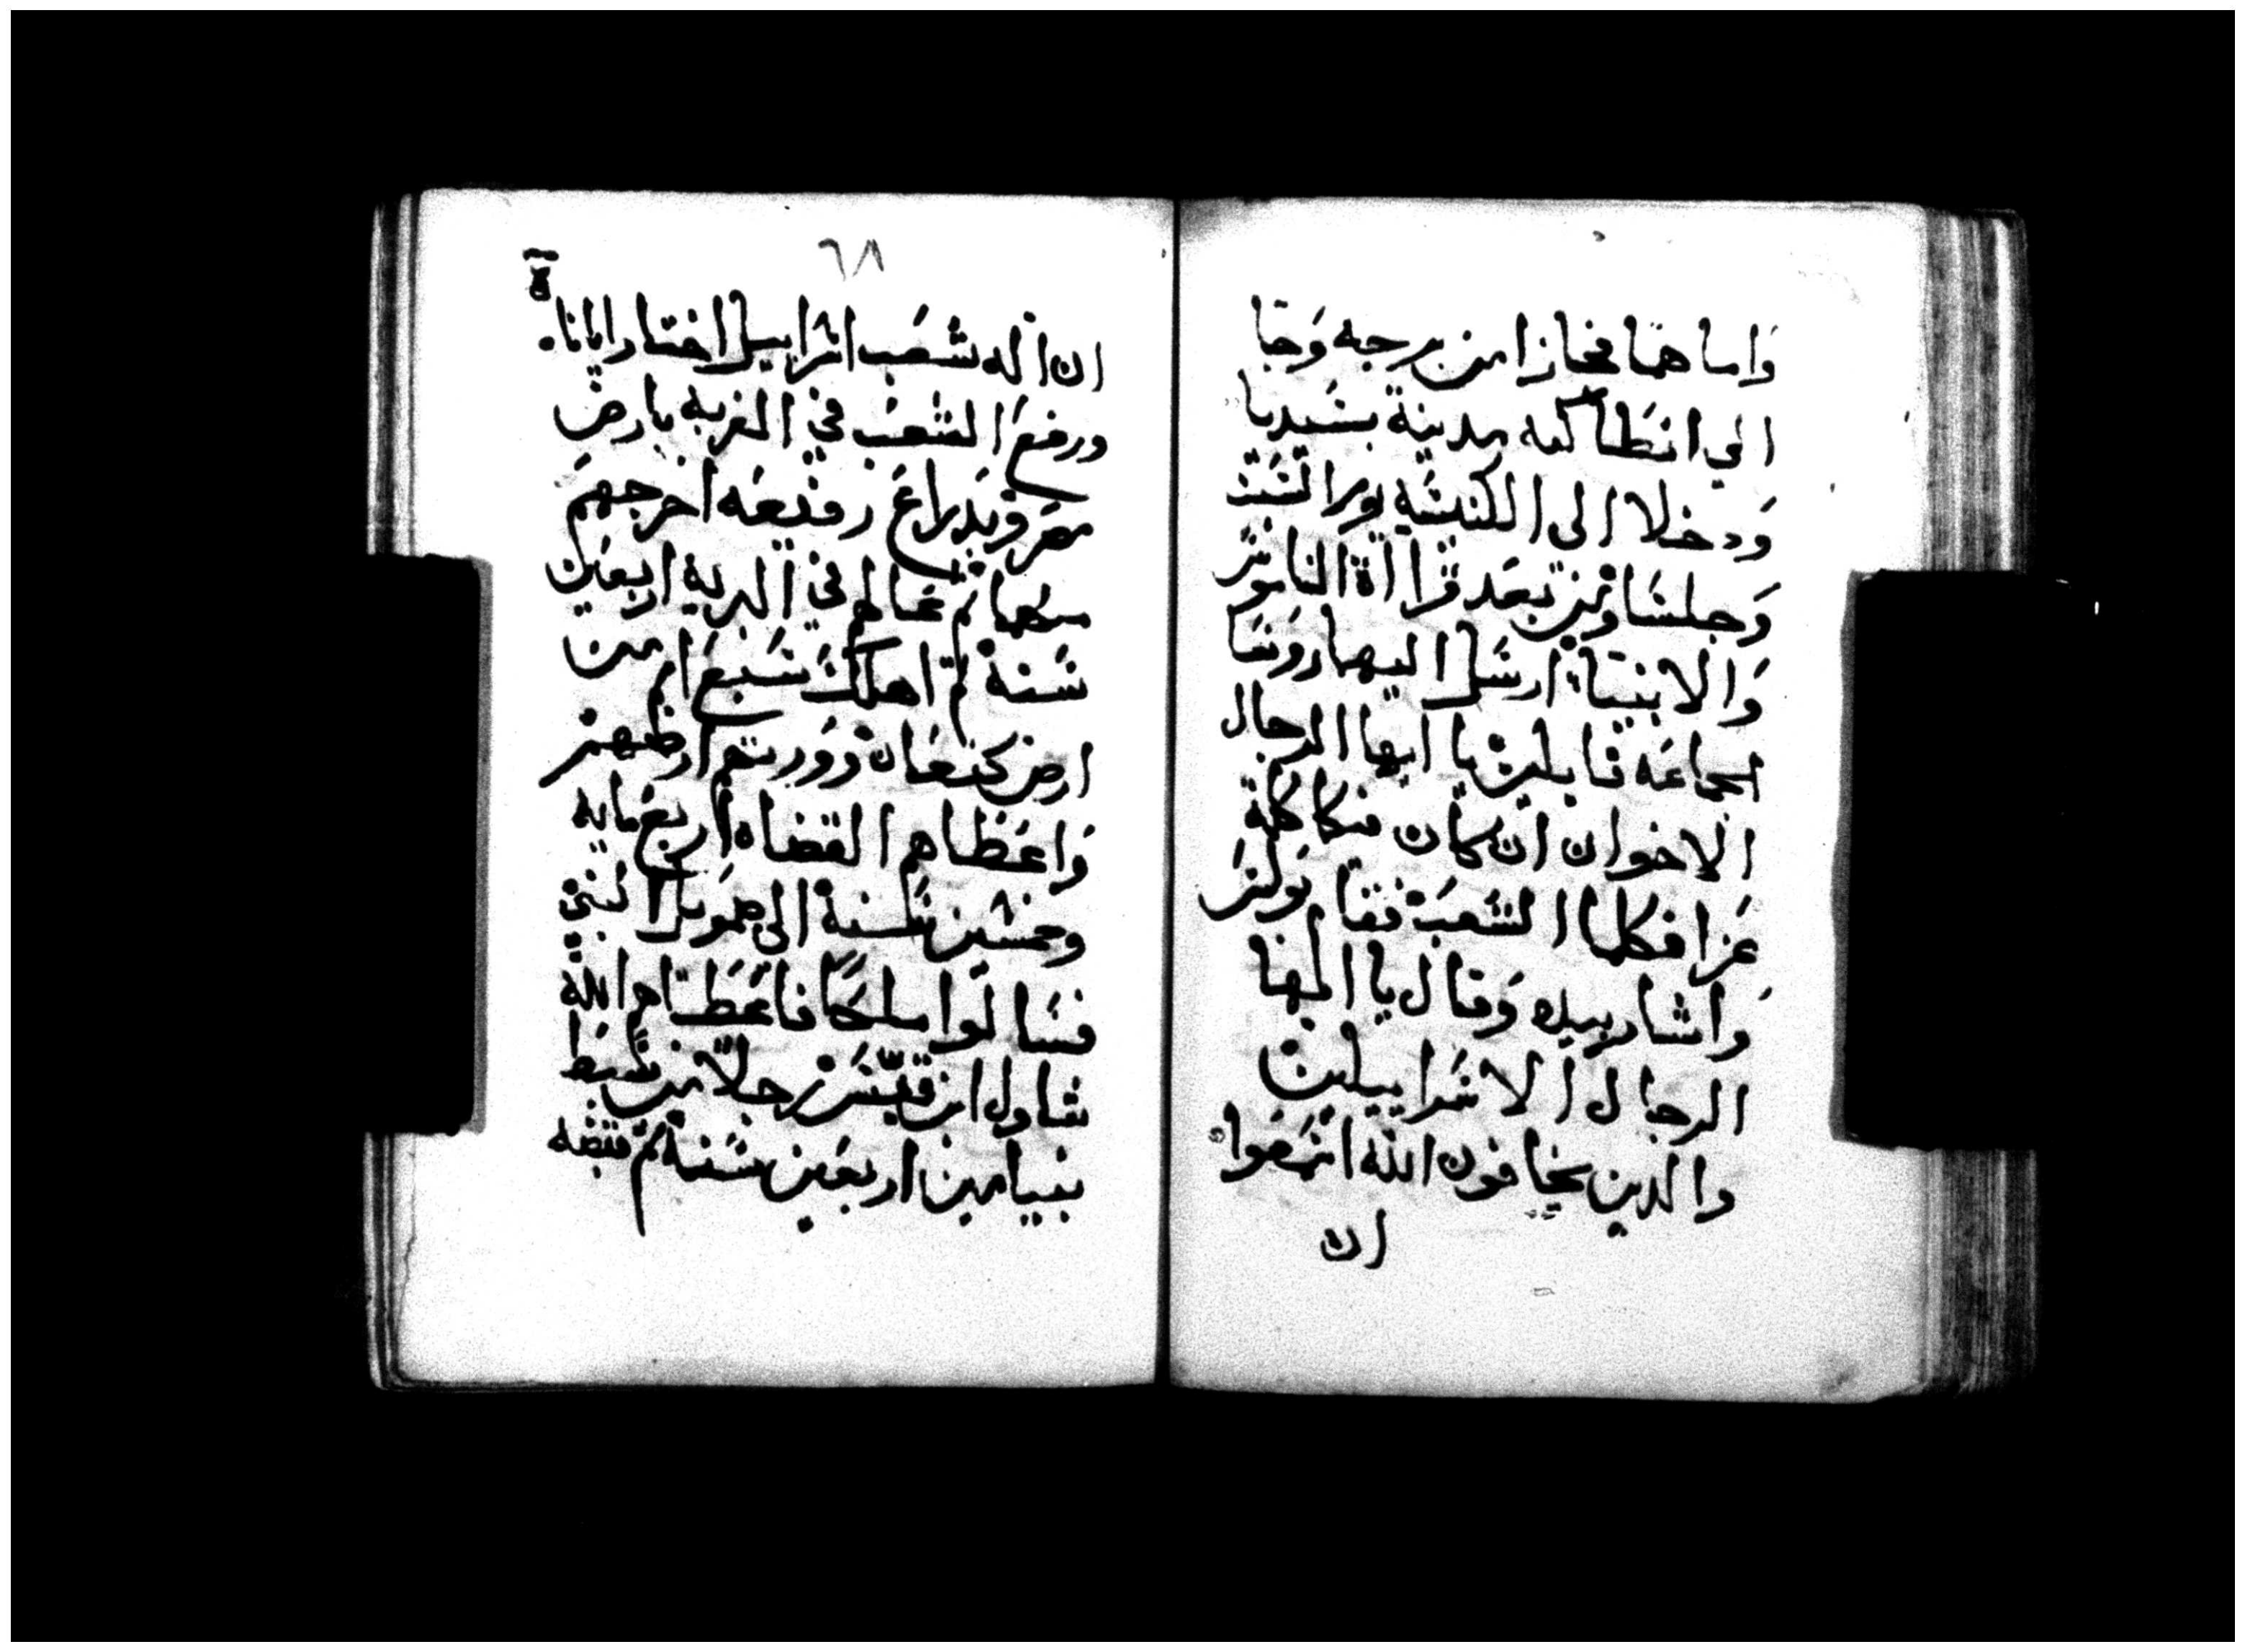 واما هما فجازا من برجه وجا
الي انطاكيه مدينة بسيديا
ودخلا الى الكنيسه يوم السبت
وجلسا ومن بعد قرااة الناموس
والانبيا ارسل اليهما روسا
الجماعه قايلين يا ايها الرجال
الاخوان ان كان فيكما كلمة
عزا فكلما الشعب فقام بولس
واشار بيده وقال يا ايها
الرجال الاسراييلين
والدين يخافون الله اسمعوا
ان
٦٨
ان اله شعب اسراييل اختار ابانا.
ورفع الشعب في الغربه بارض
مصر وبدراع رفيعه اخرجهم
منها ثم عالهم في البريه اربعين
سنة ثم اهلك سبع امم من
ارض كنعان وورثهم ارضهم
واعطاهم القضاه اربع مايه
وخمسين سنة الى صمويل النبي
فسالوا ملكا فاعطاهم الله
شاول ابن قيس رجلا من سبط
بنيامين اربعين سنة ثم قبضه